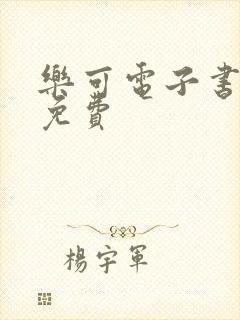 樂可電子书
免費
楊宇軍